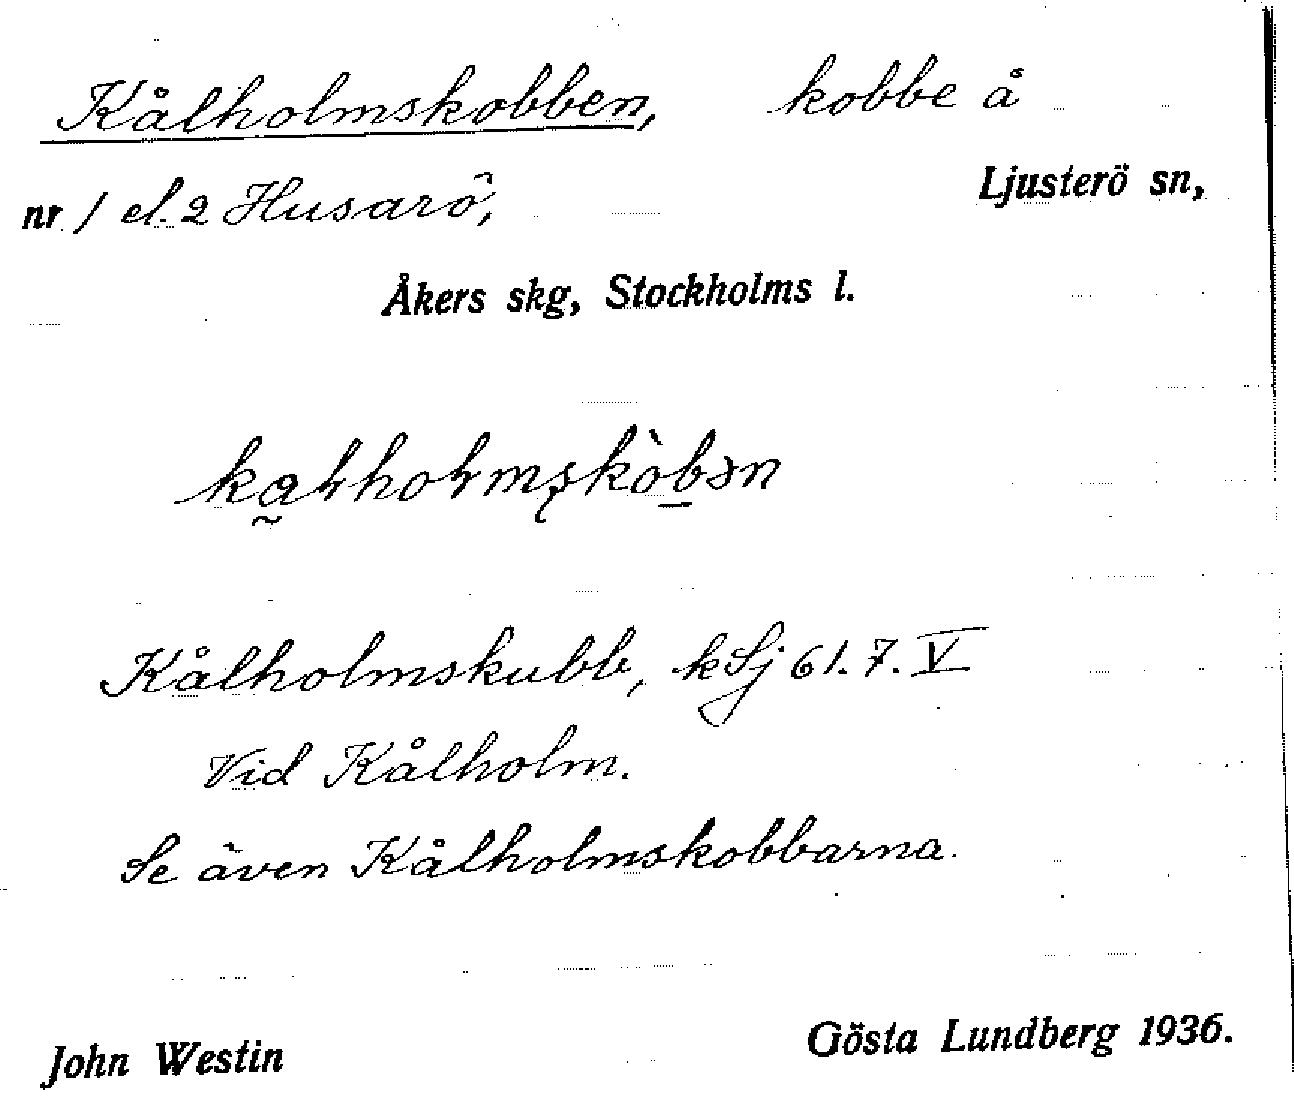 Kålholmskobben, kobbe å
nr 1 el. 2 Husarö, Ljusterö sn,
Åkers skg, Stockholms l.
Kålholmskubb, kSj 61.7.V
Vid Kålholm.
Se även Kålholmskobbarna.
John Westin Gösta Lundberg 1936.